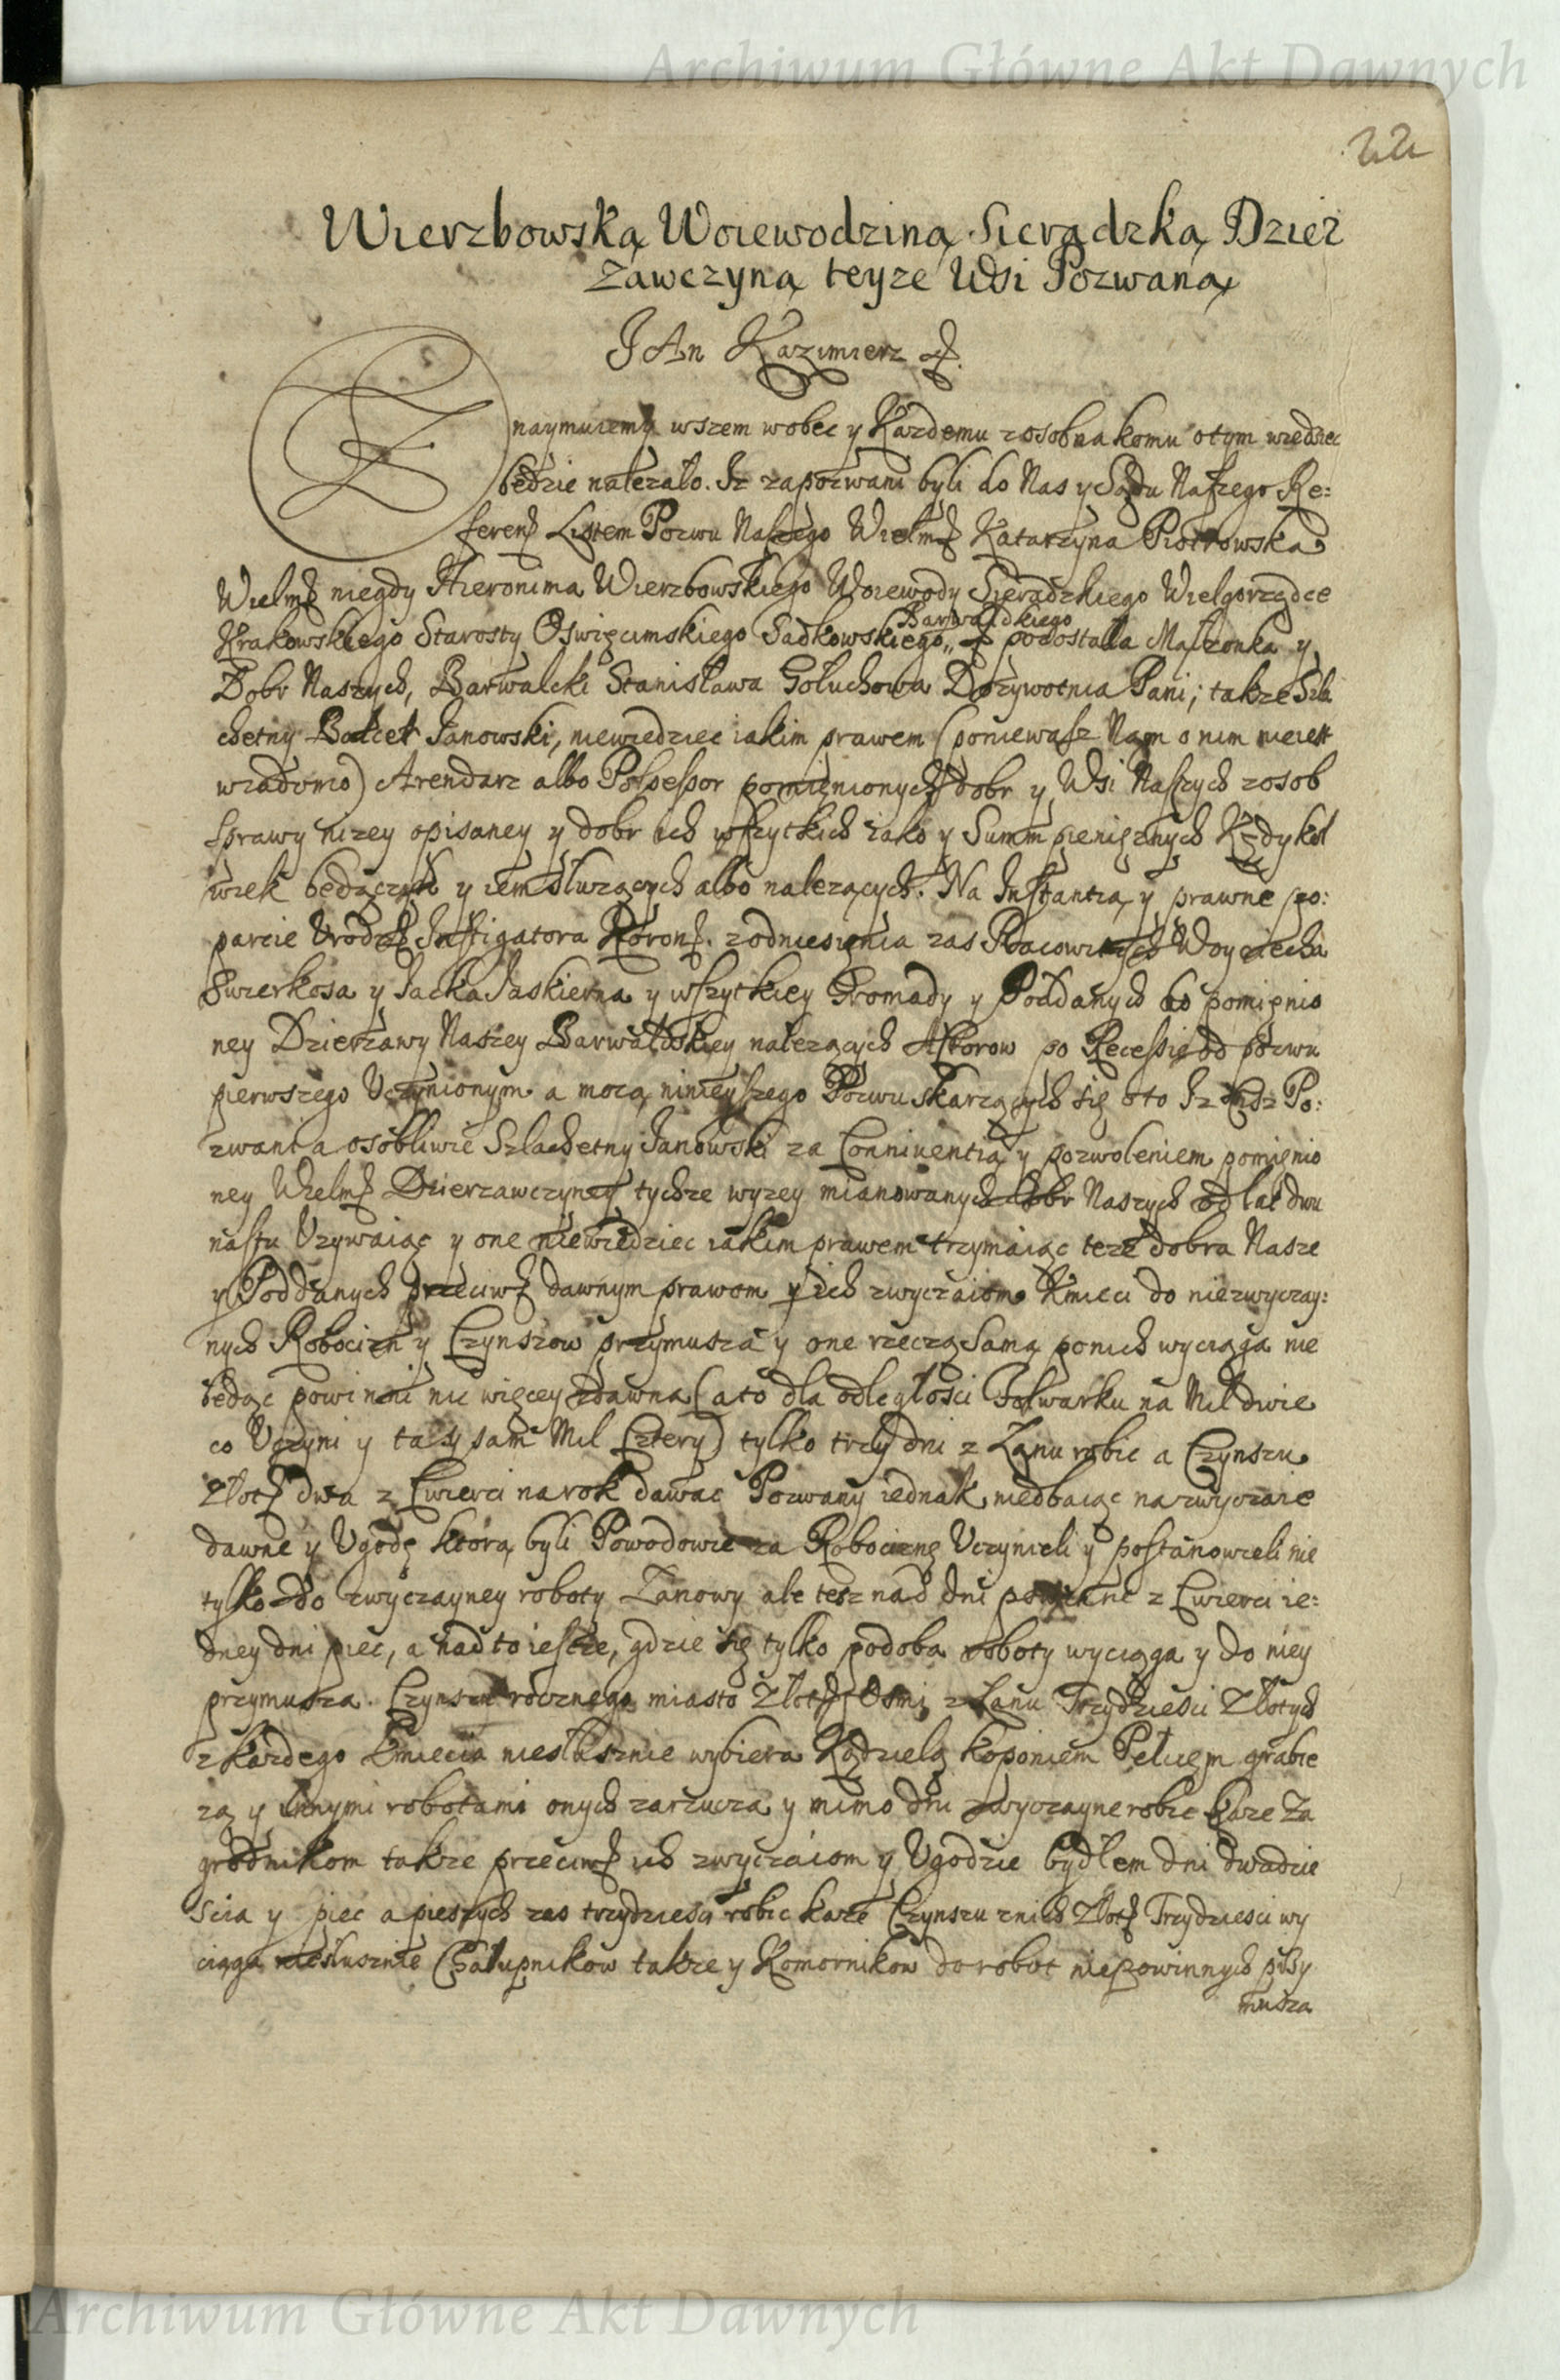 Archiwum Główne Akt Dawnych
22
Wierzbowską Woiewodziną Sieradzką Dzier
zawczyną teyze Wsi Pozwaną
JAn Kazimierz
Znaymuiemy wszem wobec y Kazdemu zosobna komu otym wiedziec
będzie nalezało. Iz zapozwani byli do Nas y Sądu Naszego Re:
ferenſ Listem Pozwu Naszego Wielmſ Katarzyna Piotrowska
Wielmſ niegdy Hieronima Wierzbowskiego Woiewody Sieradzkiego Wielgorządce
Barwałdkiego
Krakowskiego Starosty Oswięcimskiego Sadkowskiego,, pozostała Małzonka y
Dobr Naszych, Barwalcki Stanisława Gołuchowa Dozywotnia Pani; takze Szla
chetny Balcer Janowski, niewiedziec iakim prawem (poniewasz Nam o nim nieiest
wiadomo) Arendarz albo Possessor pomięnionych dobr y Wsi Naszych zosob
sprawy nizey opisaney y dobr ich wszytkich iako y Summ pienięznych Kędykol
wiek będących y iem słuzących albo nalezących. Na Instantią y prawne po:
parcie Urodzſ Instigatora Koronſ. zodniesięnia zas Pracowitych Woyciecha
Swierkosa y Jacka Jaskierna y wszytkiey Gromady y Poddanych do pomięnio
ney Dzierzawy Naszey Barwałdskiey nalezących Aktorow po Recessię od pozwu
pierwszego Uczynionym a mocą ninieyszego Pozwu skarzących się oto Iz Po:
zwani a osobliwie Szlachetny Janowski za Conniventią y pozwoleniem pomięnio
ney Wielmſ Dzierzawczyney tychze wyzey mianowanych Dobr Naszych od lat dwu
nastu Uzywaiąc y one niewiedziec iakim prawem trzymaiąc tez dobra Nasze
y Poddanych przeciwſ dawnym prawom y ich zwyczaiom Kmieci do niezwyczay:
nych Robocizn y Czynszow przymusza y one rzeczą samą ponich wyciąga nie
będąc powinni nic więcey zdawna (a to dla odległosci Folwarku na Mil dwie
co Uczyni y tam y sam Mil Cztery) tylko trzy dni z Łanu robic a Czynszu
Złotſ dwa z Cwierci na rok dawac Pozwany iednak niedbaiąc na zwyczaie
dawne y Ugodę ktorą byli Powodowie za Robociznę Uczynieli y postanowieli nie
tylko do zwyczayney roboty Łanowy ale tesz nad dni powinne z Cwierci ie:
dney dni piec, a nad to ieszcze, gdzie się tylko podoba roboty wyciąga y do niey
przymusza. Czynszu rocznego miasto Złotſ Osmi z Łanu Trzydziesci Złotych
z kazdego Kmiecia niesłusznie wybiera Kądzielą koponiem Pełciem grabie
zą y innymi robotami onych zarzuca y mimo dni zwyczayne robic kaze Za
grodnikom takze przeciwſ ich zwyczaiom y Ugodzie bydłem dni dwadzie
scia y piec a pieszych zas trzydziesci robic kaze Czynszu znich Złotſ Trzydziesci wy
ciąga niesłusznie Chałupnikow takze y Komornikow do robot niepowinnych przy
musza
Archiwum Główne Akt Dawnych